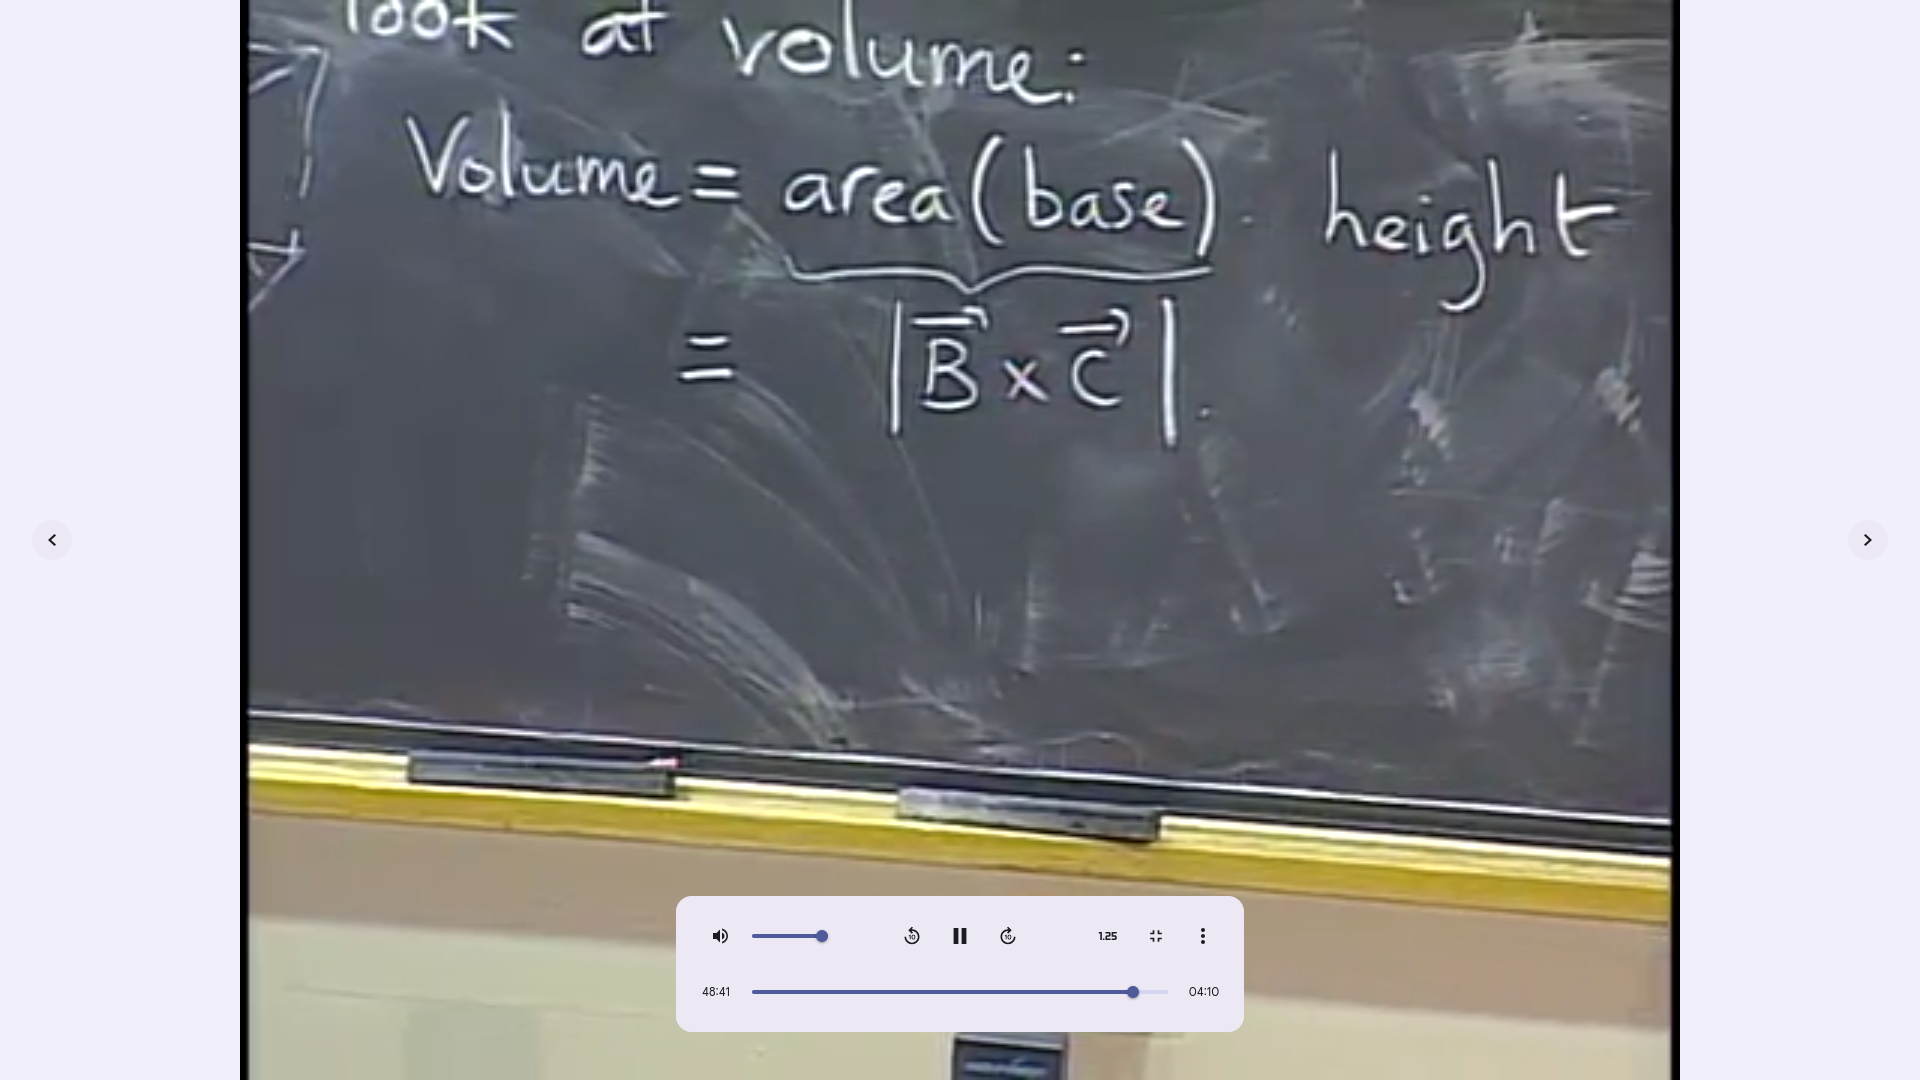 look at volume:
Volume = area(base) · height
= |B⃗ × C⃗|.
10 10 1.25
48:41 04:10